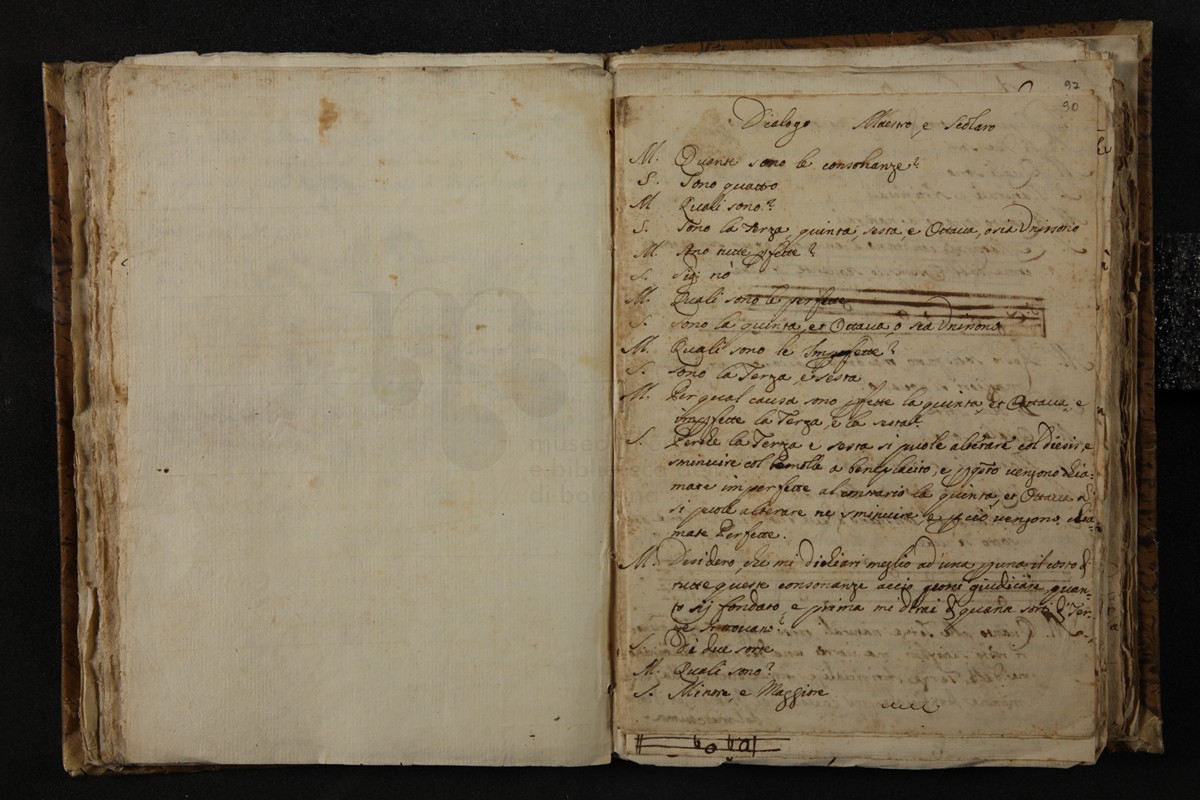 97
90
Dialogo Maestro, e Scolaro
M. Quante sono le consonanze?
S. Sono quattro
M. Quali sono?
S. Sono la Terza, quinta, sesta, e Ottava, o sia Unisono
M. sono tutte pfette?
S. Sig. nò
M. Quali sono le perfette
S. sono la quinta, et Ottava, o sia Unisono
M. Quali sono le Imperfette?
S. sono la Terza, e sesta
M. Per qual causa sono pfette la quinta, et Ottava, e
impfette la Terza, e la sesta?
S. Perche la Terza e sesta si puole alterare col Diesis, e
sminuire col bemolle a beneplacito, e pqsto vengono chia:
mate imperfette al contrario la quinta, et Ottava nò
si puole alterare ne sminuire, e pciò vengono chia:
mate Perfette.
M. Desidero, che mi dichiari meglio ad una puna il tutto di
tutte queste consonanze acciò possi giudicare quan:
to sij fondato, e prima mi dirai di quante sorti di Ter:
ze si trovano
S. Di due sorte
M. Quali sono?
S. Minore, e Maggiore
museo
e biblio
di bologna